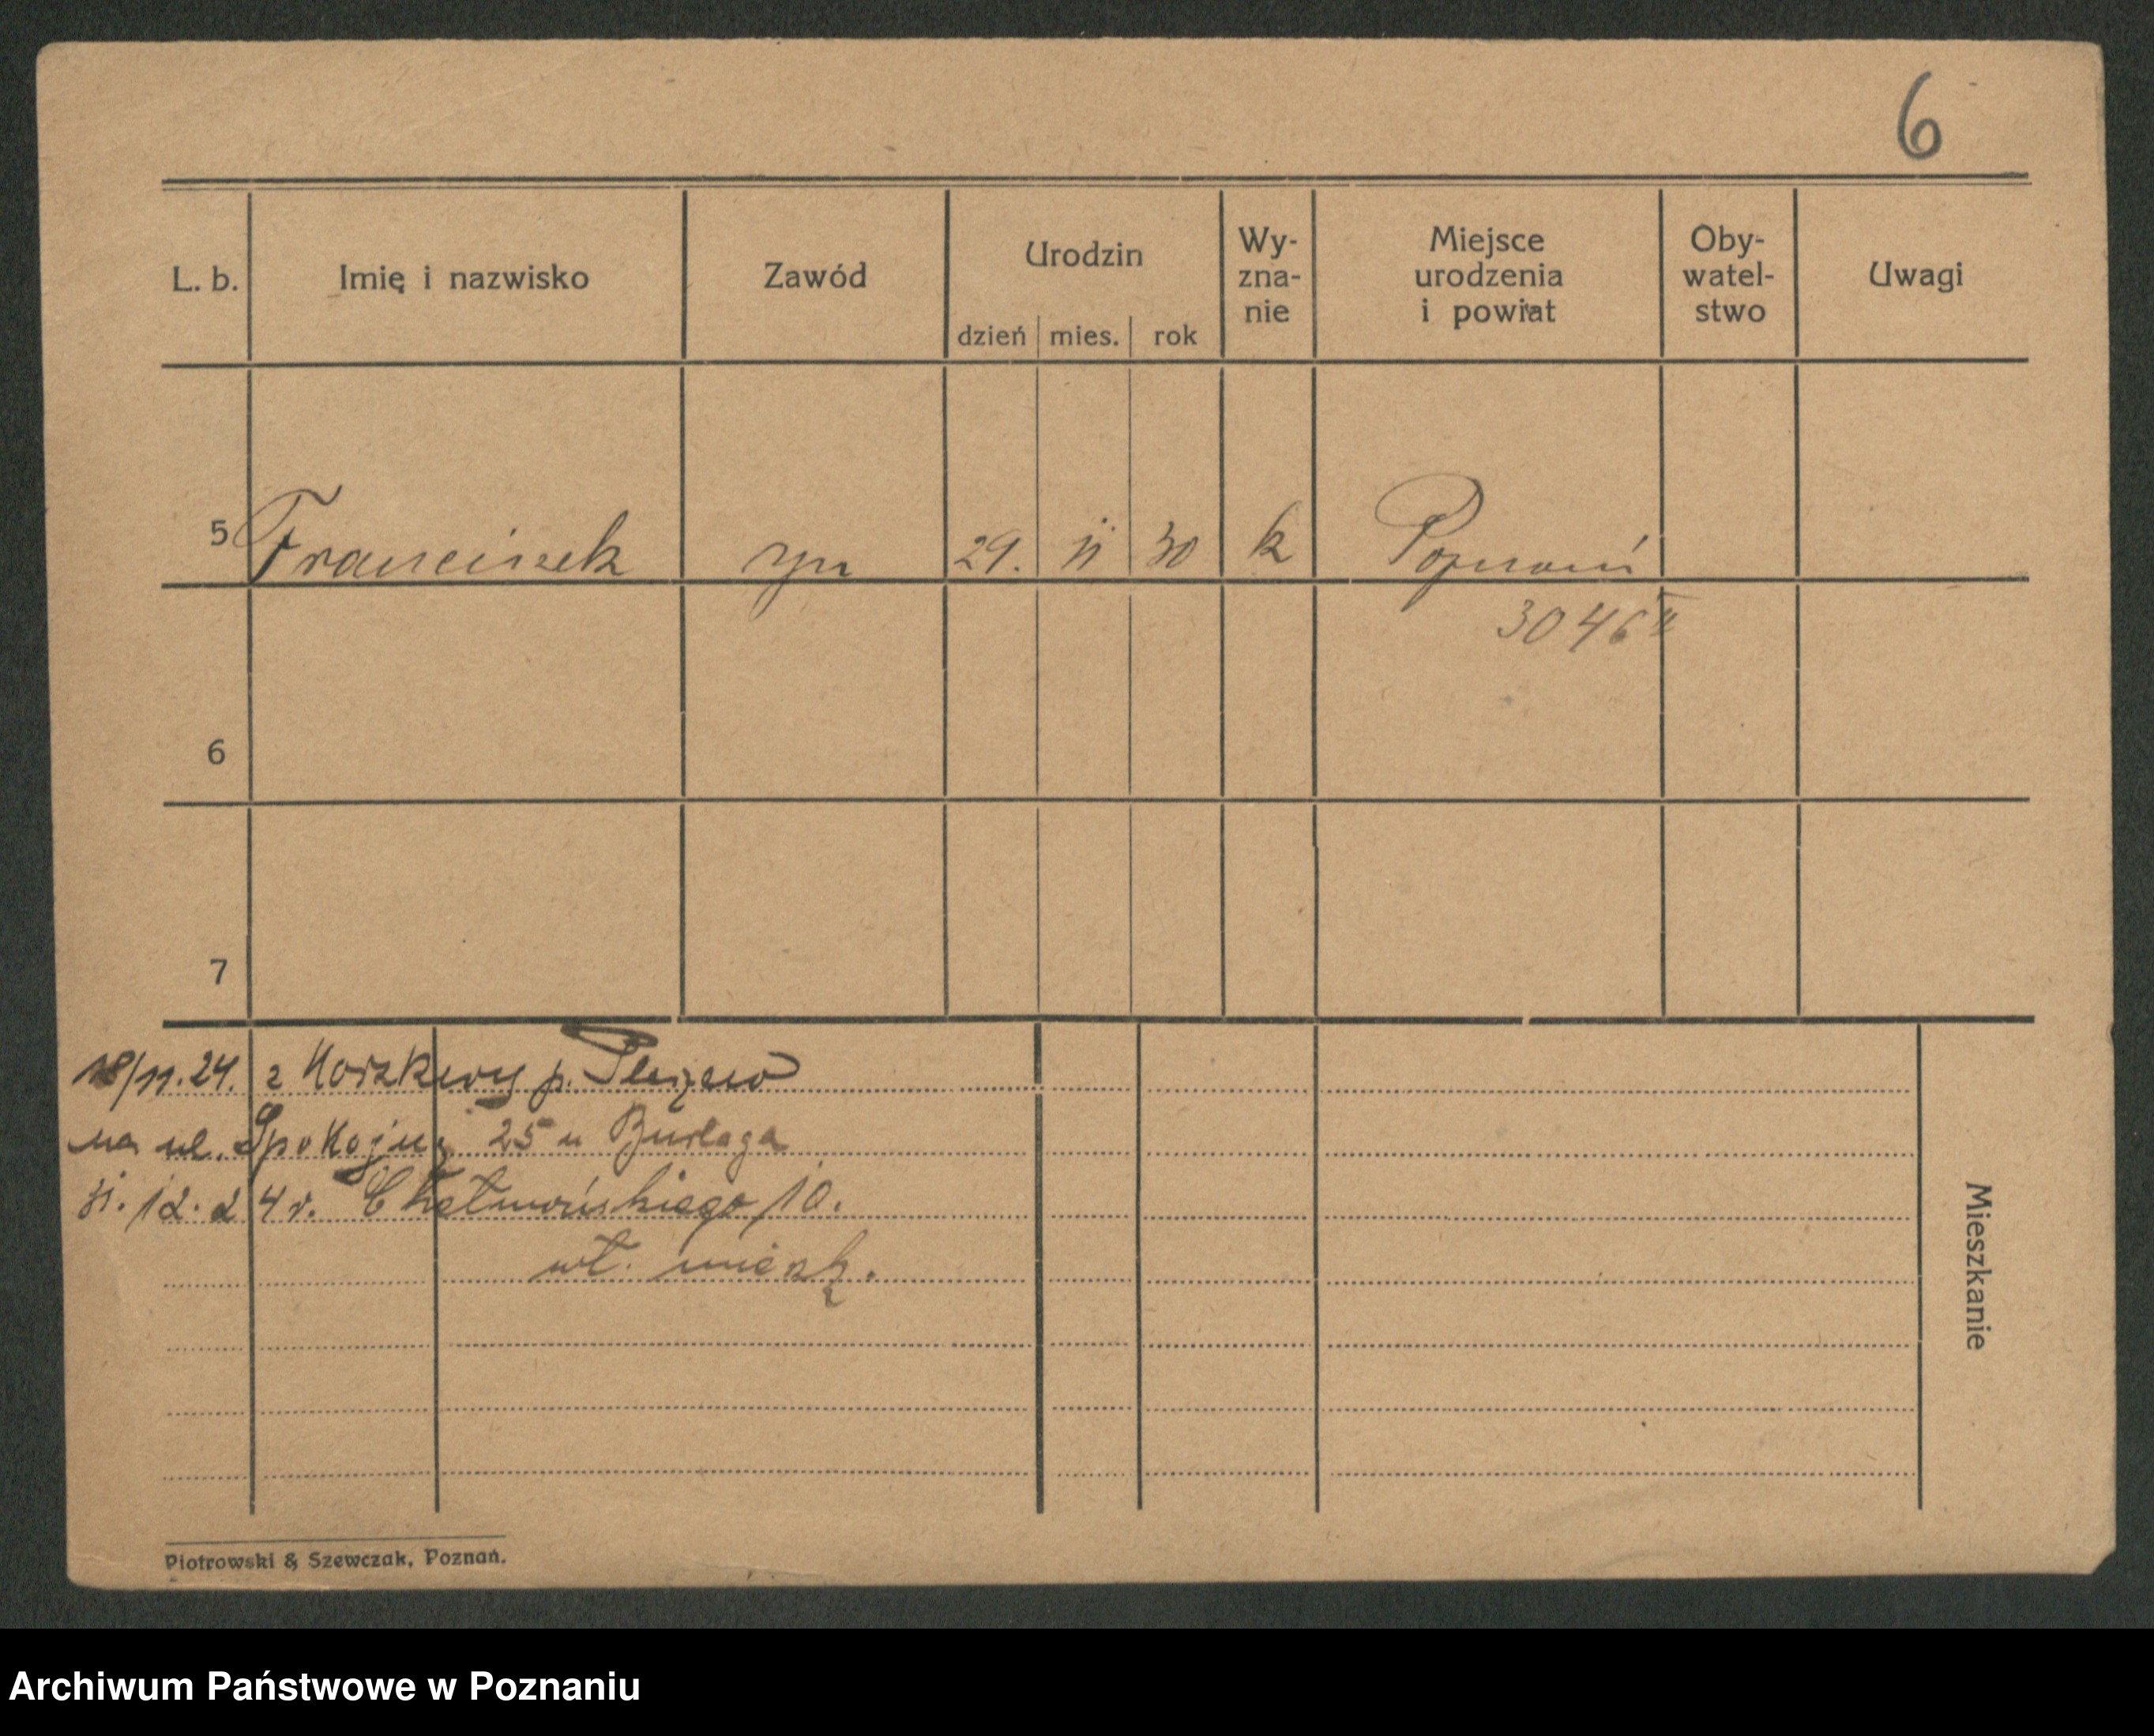 6
L. b.
Imię i nazwisko
Zawód
Urodzin
dzień mies. rok
Wy-
zna-
nie
Miejsce
urodzenia
i powiat
Oby-
watel-
stwo
Uwagi
5 Franciszek syn 29. 11 30 k Poznań
3046 II
6
7
18/11.24. z Korzkwy p. Pleszew
na ul. Spokojną 25 u Burlaga
31.12.24 r. Chełmońskiego 10.
wł. mieszk.
Mieszkanie
Piotrowski & Szewczak, Poznań.
Archiwum Państwowe w Poznaniu